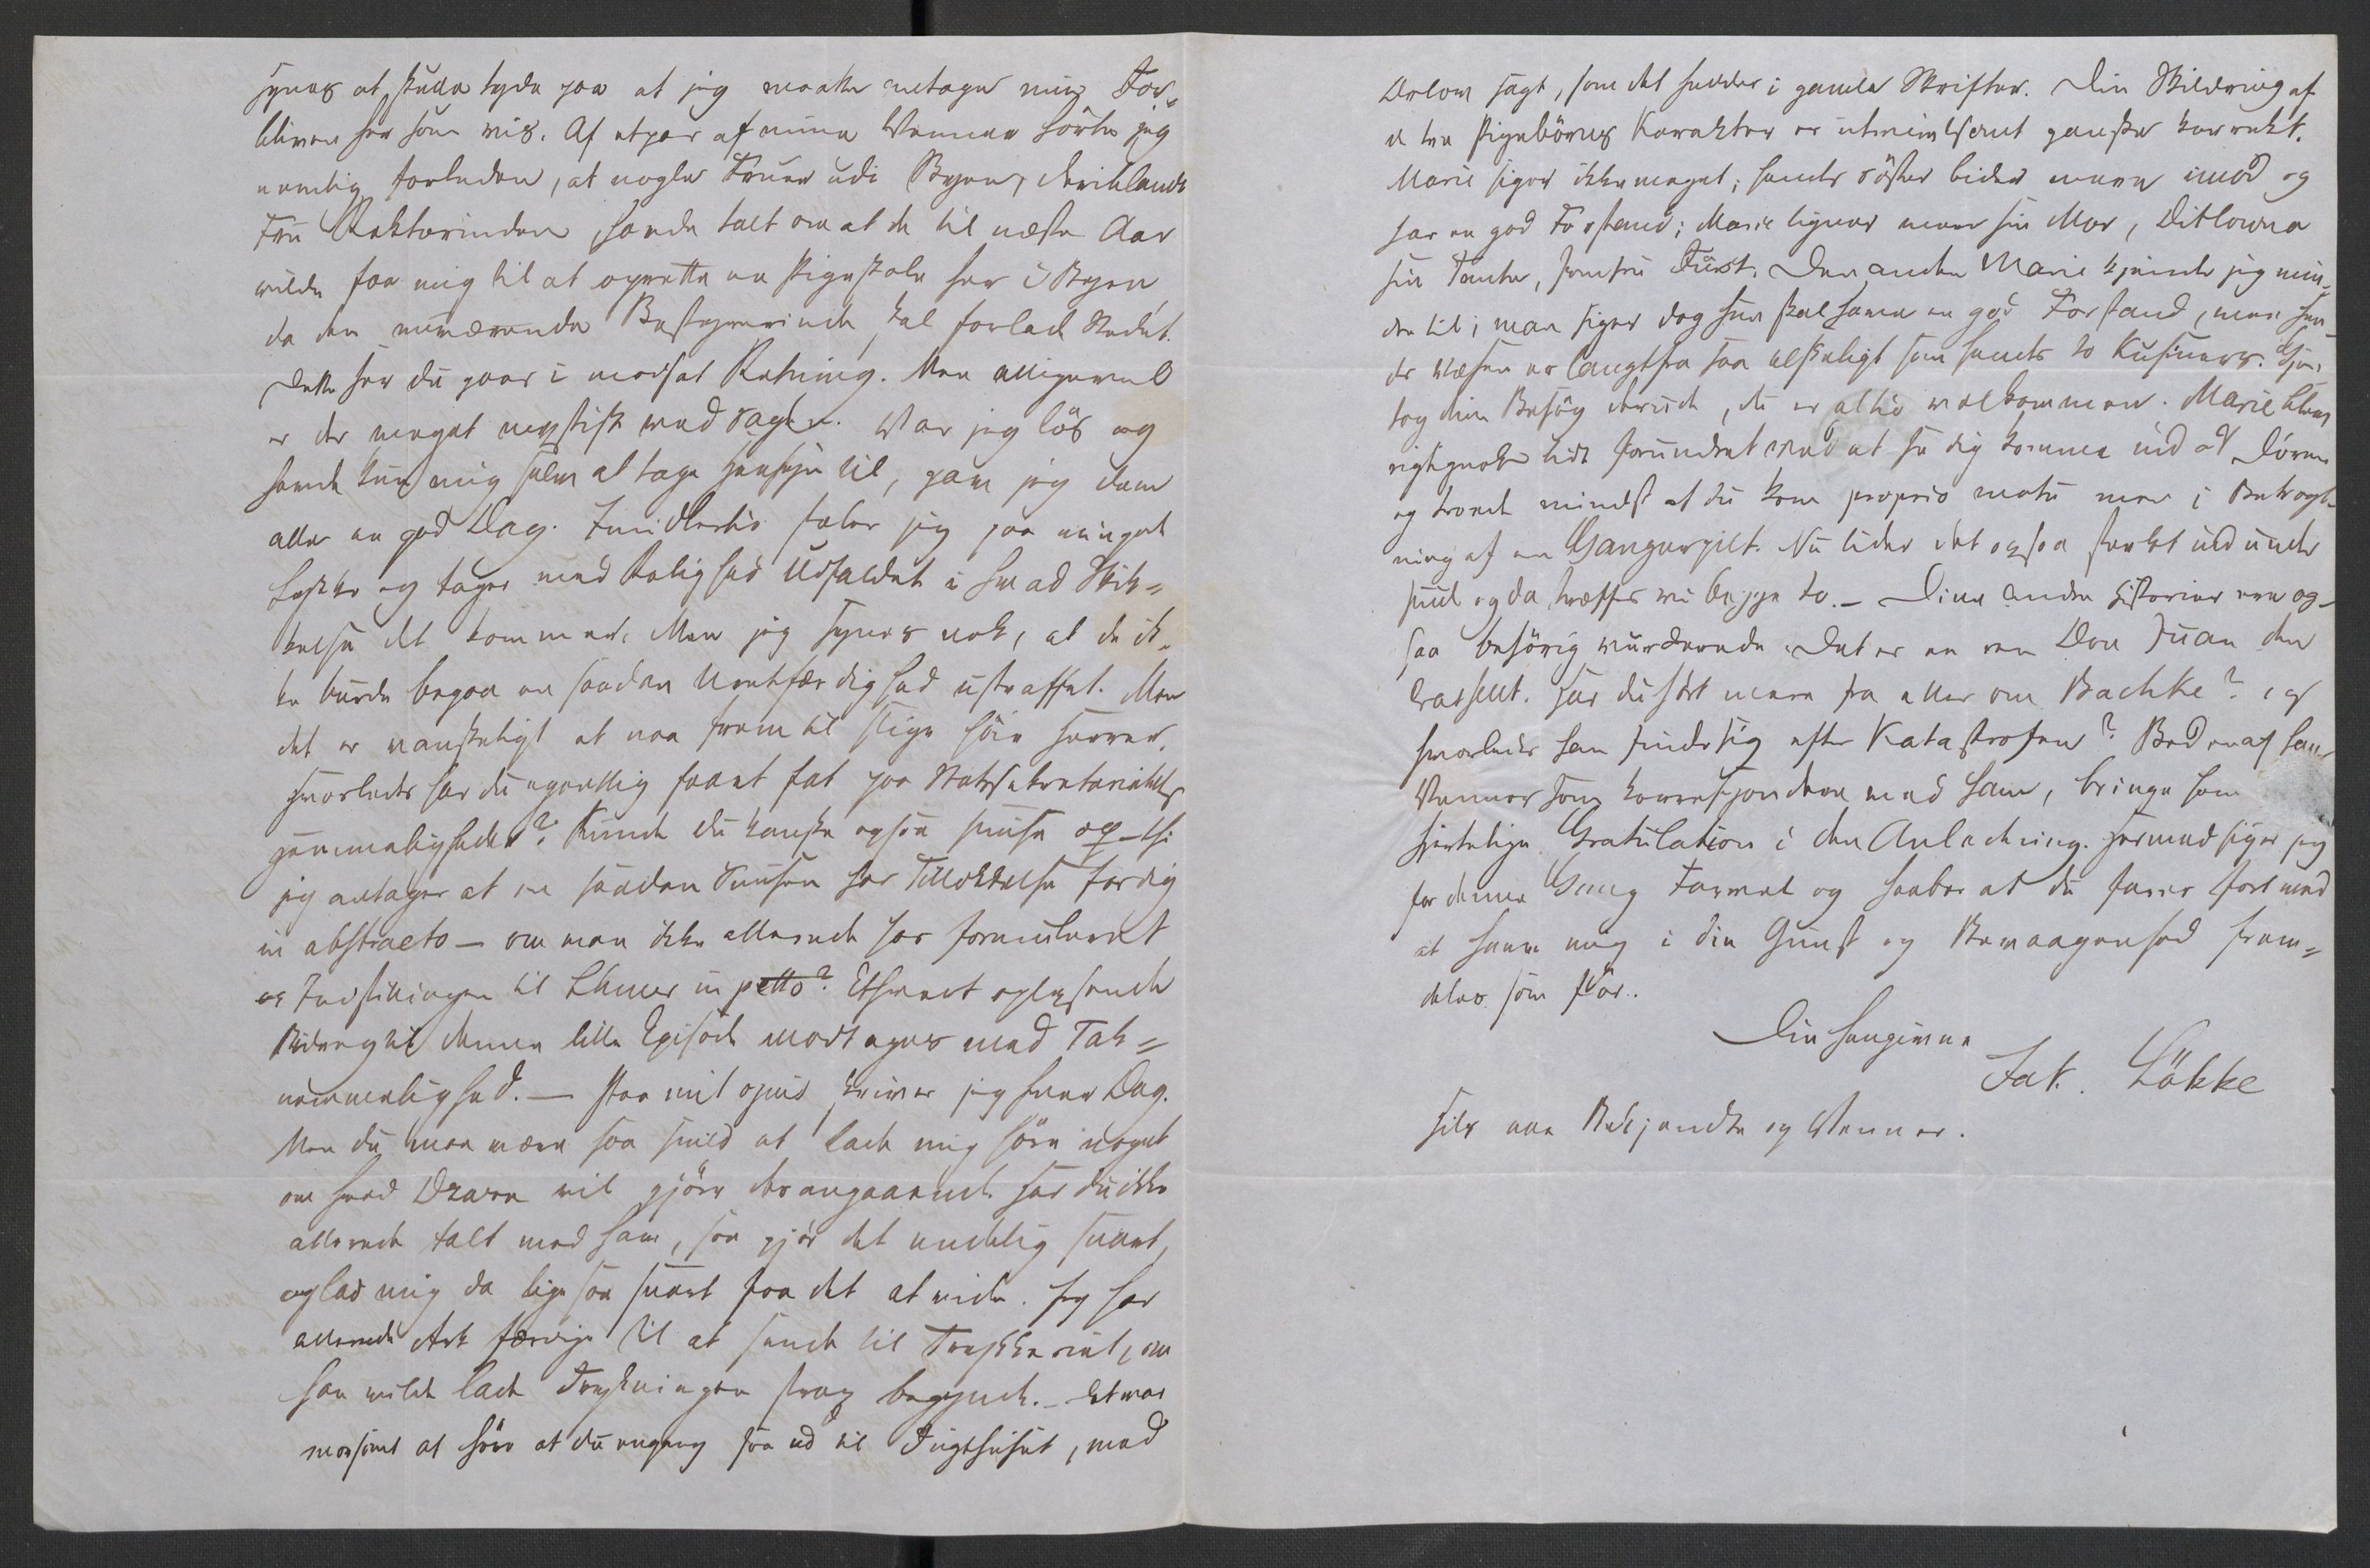 synes at skulle tyde paa at jeg maatte antage min For-
bliven her som vis. Af etpar af mine Venner hørte jeg
nemlig forleden, at nogle Fruer udi Byen, deriblandt
Fru Rektorinden havde talt om at de til næste Aar
vilde faa mig til at oprette en Pigeskole her i Byen,
da den nuværende Bestyrerinde skal forlade Stedet.
Dette hør du gaar i modsat Retning. Men alligevel
er der meget mystisk ved Sagen. Var jeg løs og
havde kun mig selv at tage Hensyn til, gav jeg dem
alle en god Dag. Imidlertidføler jeg paa meget
og tager med Rolighed Udfaldet i hvad Skik-
kelse det kommer. Men jeg synes nok, at de ik-
ke burde begaa en saadan Uretfærdighed ustraffet. Men
det er vanskeligt at naa frem til slige høie Herrer.
Hvorledes har du egentlig faaet fat paa Statssekretariatets
hemmeligheder? Kunde du kanske ogsaa snuse op – thi
jeg antager at en saadan Snusen har Tillokkelse for dig
in abstracto – om man ikke allerede har formuleret
Indstillingen til in petto? Ethvert oplysende
Bidrag til denne lille Episode modtages med Tak-
nemmelighed. – Paa mit opus skriver jeg hver Dag.
Men du maa være saa snild at lade mig høre noget
om hvad vil gjøre desangaaende. Har du ikke
allerede talt med ham, saa gjør det endelig snart,
og lad mig da lige saa snart faa det at vide. Jeg har
allerede Ark færdige til at sende til Trykkeriet, om
han vilde lade Trykningen strax begynde. – Det var
morsomt at høre at du engang saa ud til Tugthuset, med
Orlov sagt, som det hedder i gamle Skrifter. Din Skildring af
de tre Pigebørns Karakter er utvivlsomt ganske korrekt.
Marie siger ikke meget; hendes Søster bider mere imod og
har en god Forstand; Marie ligner mere sin Mor, Ditlovna
sin Tante, Jomfru Fürst. Den anden Marie kjender jeg min-
dre til; man siger dog hun skal have en god Forstand, men hen-
des Væsen er langtfra saa elskeligt som hendes to Kusiners.
tag din Besøg derude, du er altid velkommen. Marie blev
rigtignok lidt forundret ved at se dig komme ind ad Døren
og troede mindst at du kom proprio motu men i Betragt-
ning af en Gangerpilt. Nu lider det ogsaa stærkt ind under
Juul og da træffes vi begge to. – Dine andre Historier ere og-
saa behørig vurderede. Det er en ren Don Juan den
Har du hørt mere fra eller om Bachke? og
hvorledes han finder sig efter Katastrofen? Bed en af hans
Venner som korrespondere med ham, bringe ham
hjertelige Gratulation i den Anledning. Hermed siger jeg
for denne Gang Farvel og haaber at du farer fort med
at have mig i din Gunst og Bevaagenhed frem-
deles som før.
Din hengivne
Jak. Løkke
Hils alle Bekjendte og Venner.